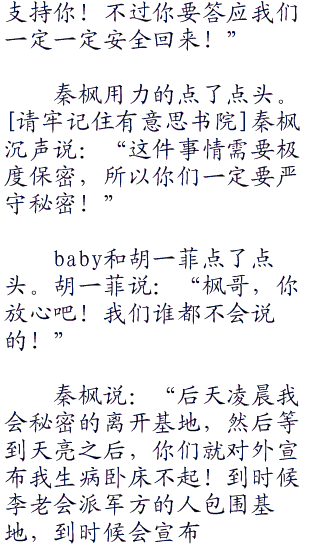 支持你！不过你要答应我们
一定一定安全回来！”
秦枫用力的点了点头。
[请牢记住有意思书院]秦枫
沉声说：“这件事情需要极
度保密，所以你们一定要严
守秘密！”
baby和胡一菲点了点
头。胡一菲说：“枫哥，你
放心吧！我们谁都不会说
的！”
秦枫说：“后天凌晨我
会秘密的离开基地，然后等
到天亮之后，你们就对外宣
布我生病卧床不起！到时候
李老会派军方的人包围基
地，到时候会宣布